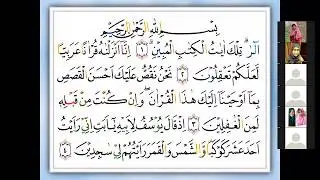 بِسْمِ اللَّهِ الرَّحْمَٰنِ الرَّحِيمِ
الٓرٰ ۚ تِلْكَ اٰيٰتُ الْكِتٰبِ الْمُبِيْنِ ﴿١﴾ اِنَّآ اَنْزَلْنٰهُ قُرْاٰنًا عَرَبِيًّا
لَّعَلَّكُمْ تَعْقِلُوْنَ ﴿٢﴾ نَحْنُ نَقُصُّ عَلَيْكَ اَحْسَنَ الْقَصَصِ
بِمَآ اَوْحَيْنَآ اِلَيْكَ هٰذَا الْقُرْاٰنَ ۖ وَاِنْ كُنْتَ مِنْ قَبْلِهٖ
لَمِنَ الْغٰفِلِيْنَ ﴿٣﴾ اِذْ قَالَ يُوْسُفُ لِاَبِيْهِ يٰٓاَبَتِ اِنِّيْ رَاَيْتُ
اَحَدَ عَشَرَ كَوْكَبًا وَّالشَّمْسَ وَالْقَمَرَ رَاَيْتُهُمْ لِيْ سٰجِدِيْنَ ﴿٤﴾